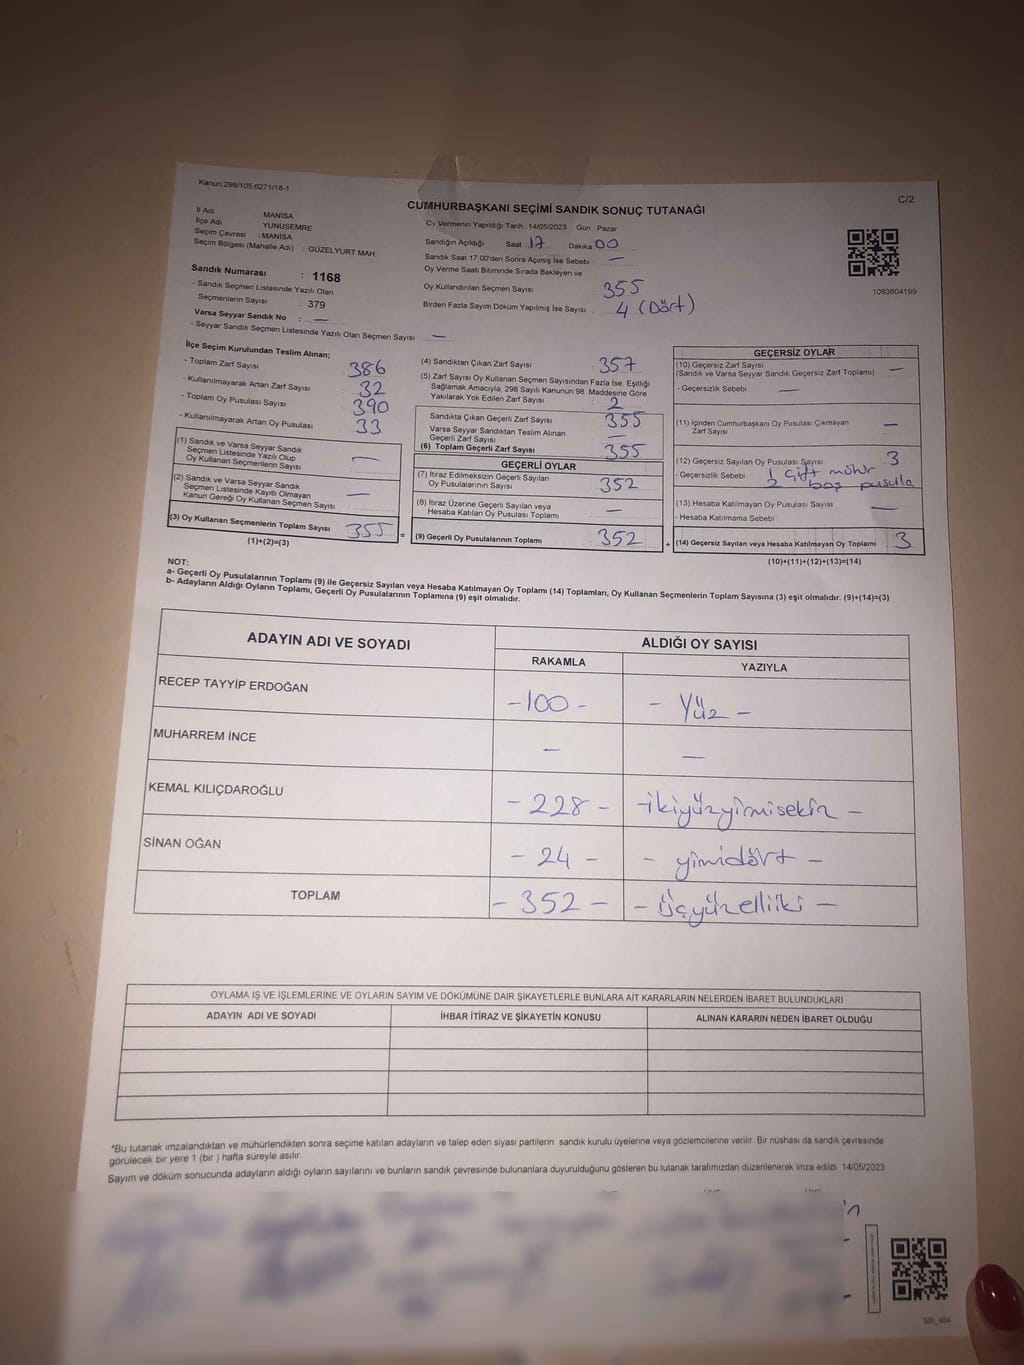 Kanun;298/105;6271/18-1
C/2
CUMHURBAŞKANI SEÇİMİ SANDIK SONUÇ TUTANAĞI
İl Adı MANİSA
İlçe Adı YUNUSEMRE
Seçim Çevresi : MANİSA
Seçim Bölgesi (Mahalle Adı) : GÜZELYURT MAH
Sandık Numarası : 1168
- Sandık Seçmen Listesinde Yazılı Olan
Seçmenlerin Sayısı : 379
Varsa Seyyar Sandık No : —
- Seyyar Sandık Seçmen Listesinde Yazılı Olan Seçmen Sayısı —
Oy Vermenin Yapıldığı Tarih 14/05/2023 Gün : Pazar
Sandığın Açıldığı Saat 17 Dakika 00
Sandık Saat 17.00'den Sonra Açılmış İse Sebebi : —
Oy Verme Saati Bitiminde Sırada Bekleyen ve
Oy Kullandırılan Seçmen Sayısı 355
Birden Fazla Sayım Döküm Yapılmış İse Sayısı 4 (Dört)
1093804199
İlçe Seçim Kurulundan Teslim Alınan;
- Toplam Zarf Sayısı 386
- Kullanılmayarak Artan Zarf Sayısı 32
- Toplam Oy Pusulası Sayısı 390
- Kullanılmayarak Artan Oy Pusulası 33
(1) Sandık ve Varsa Seyyar Sandık
Seçmen Listesinde Yazılı Olup
Oy Kullanan Seçmenlerin Sayısı —
(2) Sandık ve Varsa Seyyar Sandık
Seçmen Listesinde Kayıtlı Olmayan
Kanun Gereği Oy Kullanan Seçmen Sayısı —
(3) Oy Kullanan Seçmenlerin Toplam Sayısı 355 =
(1)+(2)=(3)
(4) Sandıktan Çıkan Zarf Sayısı 357
(5) Zarf Sayısı Oy Kullanan Seçmen Sayısından Fazla İse, Eşitliği
Sağlamak Amacıyla, 298 Sayılı Kanunun 98. Maddesine Göre
Yakılarak Yok Edilen Zarf Sayısı 2
Sandıkta Çıkan Geçerli Zarf Sayısı 355
Varsa Seyyar Sandıktan Teslim Alınan
Geçerli Zarf Sayısı —
(6) Toplam Geçerli Zarf Sayısı 355
GEÇERLİ OYLAR
(7) İtiraz Edilmeksizin Geçerli Sayılan
Oy Pusulalarının Sayısı 352
(8) İtiraz Üzerine Geçerli Sayılan veya
Hesaba Katılan Oy Pusulası Toplamı —
(9) Geçerli Oy Pusulalarının Toplamı 352 +
GEÇERSİZ OYLAR
(10) Geçersiz Zarf Sayısı
(Sandık ve Varsa Seyyar Sandık Geçersiz Zarf Toplamı) —
- Geçersizlik Sebebi —
(11) İçinden Cumhurbaşkanı Oy Pusulası Çıkmayan
Zarf Sayısı —
(12) Geçersiz Sayılan Oy Pusulası Sayısı 3
- Geçersizlik Sebebi 1 çift mühür
2 boş pusula
(13) Hesaba Katılmayan Oy Pusulası Sayısı —
- Hesaba Katılmama Sebebi
(14) Geçersiz Sayılan veya Hesaba Katılmayan Oy Toplamı 3
(10)+(11)+(12)+(13)=(14)
NOT:
a- Geçerli Oy Pusulalarının Toplamı (9) ile Geçersiz Sayılan veya Hesaba Katılmayan Oy Toplamı (14) Toplamları, Oy Kullanan Seçmenlerin Toplam Sayısına (3) eşit olmalıdır. (9)+(14)=(3)
b- Adayların Aldığı Oyların Toplamı, Geçerli Oy Pusulalarının Toplamına (9) eşit olmalıdır.
ADAYIN ADI VE SOYADI ALDIĞI OY SAYISI
RAKAMLA YAZIYLA
RECEP TAYYİP ERDOĞAN - 100 - - Yüz -
MUHARREM İNCE — —
KEMAL KILIÇDAROĞLU - 228 - - ikiyüzyimisekiz -
SİNAN OĞAN - 24 - - yimidört -
TOPLAM - 352 - - Üçyüzelliiki -
OYLAMA İŞ VE İŞLEMLERİNE VE OYLARIN SAYIM VE DÖKÜMÜNE DAİR ŞİKAYETLERLE BUNLARA AİT KARARLARIN NELERDEN İBARET BULUNDUKLARI
ADAYIN ADI VE SOYADI İHBAR İTİRAZ VE ŞİKAYETİN KONUSU ALINAN KARARIN NEDEN İBARET OLDUĞU
*Bu tutanak imzalandıktan ve mühürlendikten sonra seçime katılan adayların ve talep eden siyasi partilerin sandık kurulu üyelerine veya gözlemcilerine verilir. Bir nüshası da sandık çevresinde
görülecek bir yere 1 (bir ) hafta süreyle asılır.
Sayım ve döküm sonucunda adayların aldığı oyların sayılarını ve bunların sandık çevresinde bulunanlara duyurulduğunu gösteren bu tutanak tarafımızdan düzenlenerek imza edildi. 14/05/2023